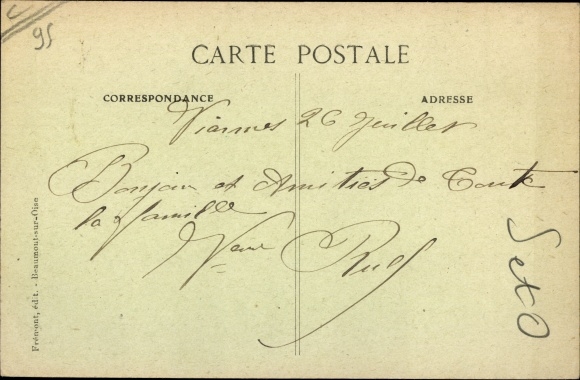 95
CARTE POSTALE
CORRESPONDANCE
ADRESSE
Viarmes 26 Juillet
Bonjour et Amitiés de Toute
la famille
Veuve
Frémont, édit. - Beaumont-sur-Oise
S et O